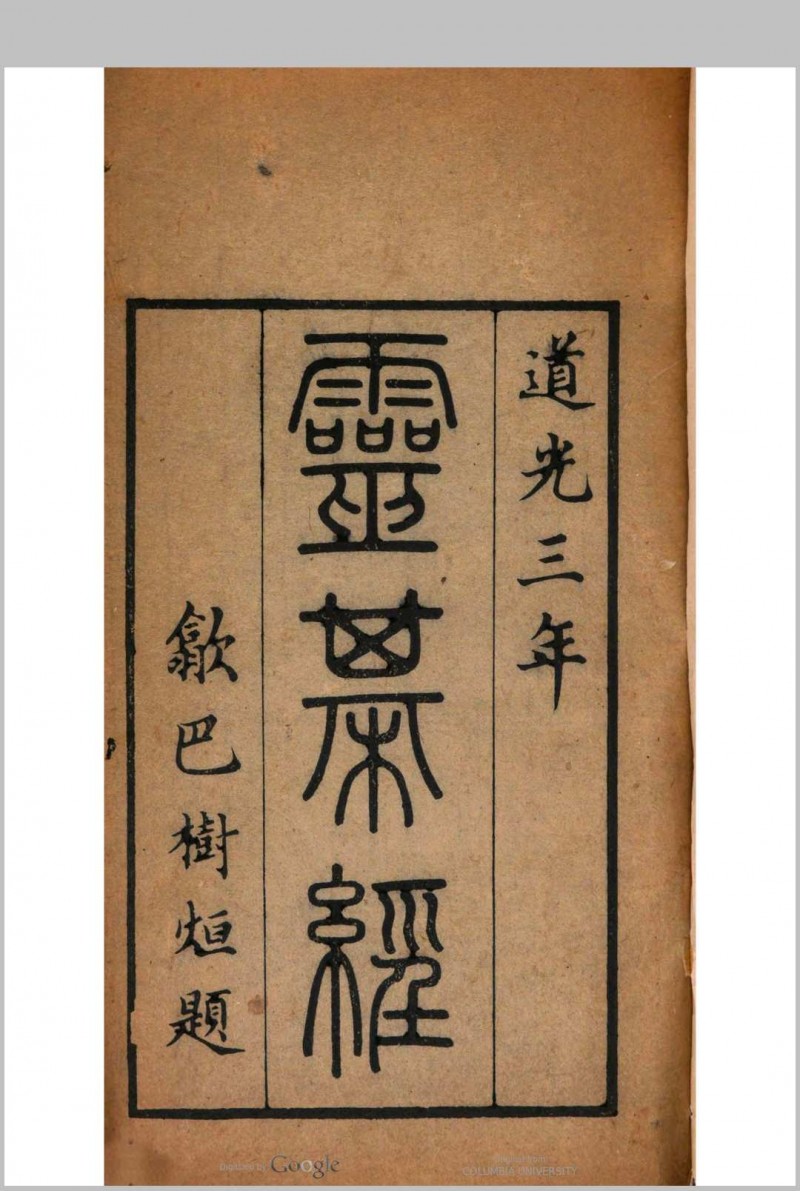 道光三年
靈棊經
歙巴樹烜題
Digitized by Google
Original from
COLUMBIA UNIVERSITY